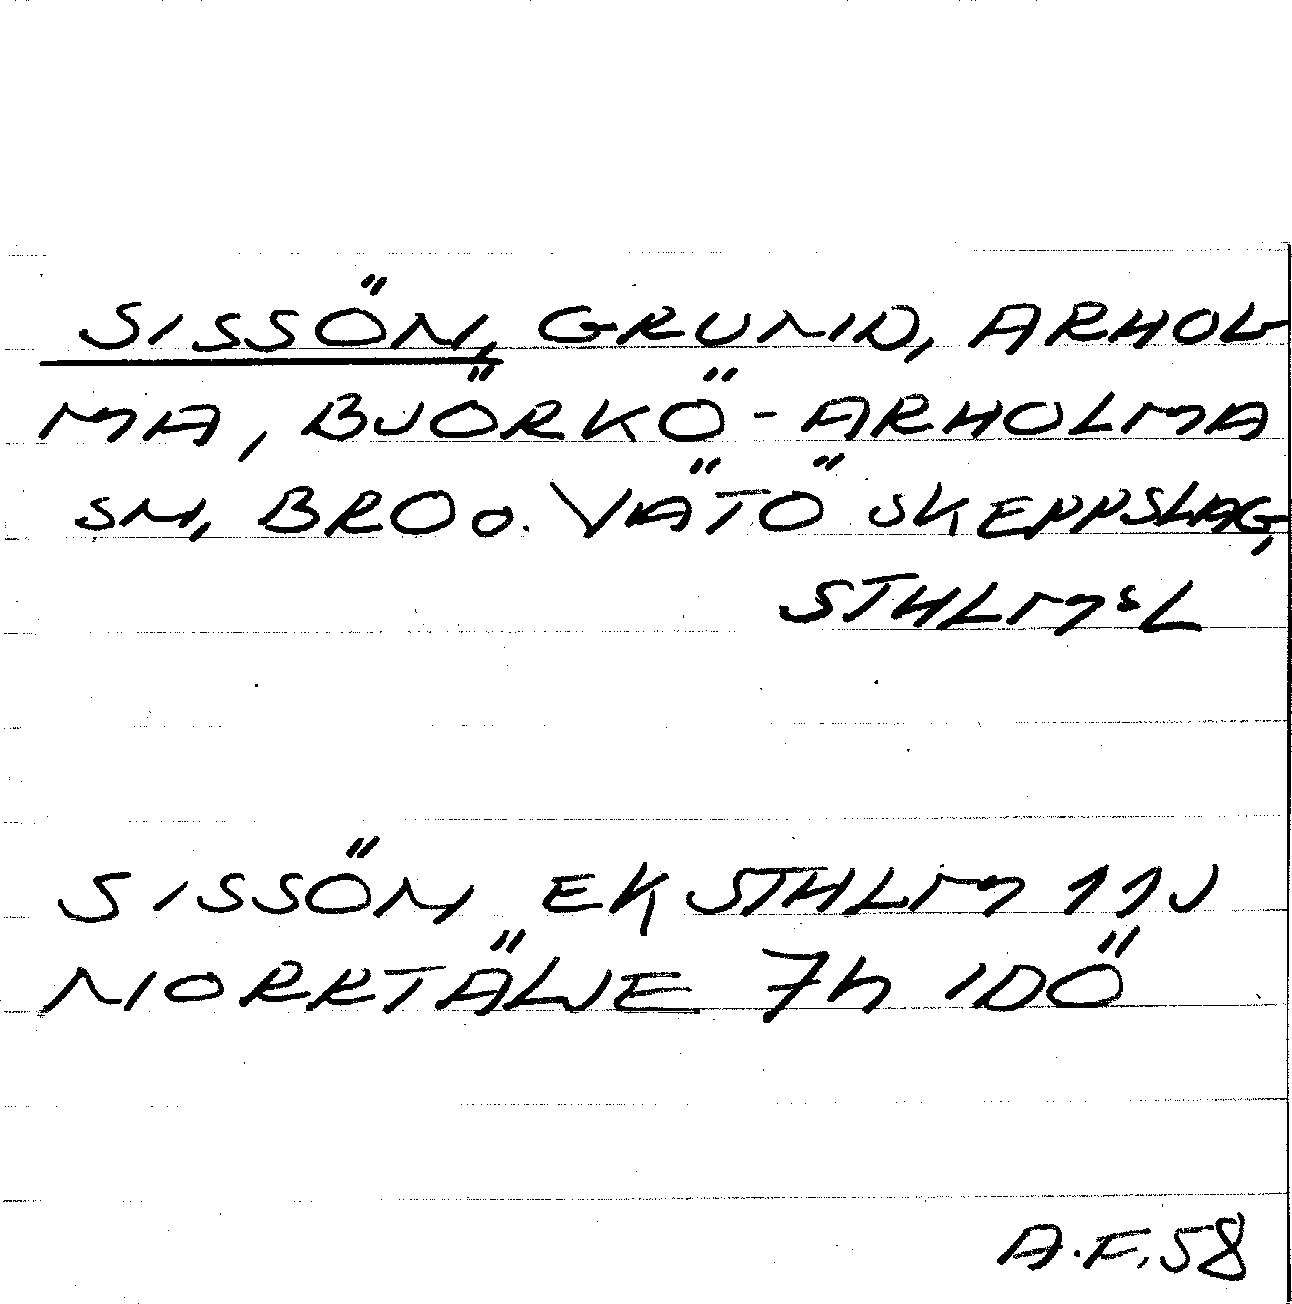 SISSÖN, GRUND, ARHOL
MA, BJÖRKÖ-ARHOLMA
SN, BRO o. VÄTÖ SKEPPSLAG,
STHLMSL
SISSÖN EK STHLM 11J
NORRTÄLJE 7h IDÖ
A.F. 58